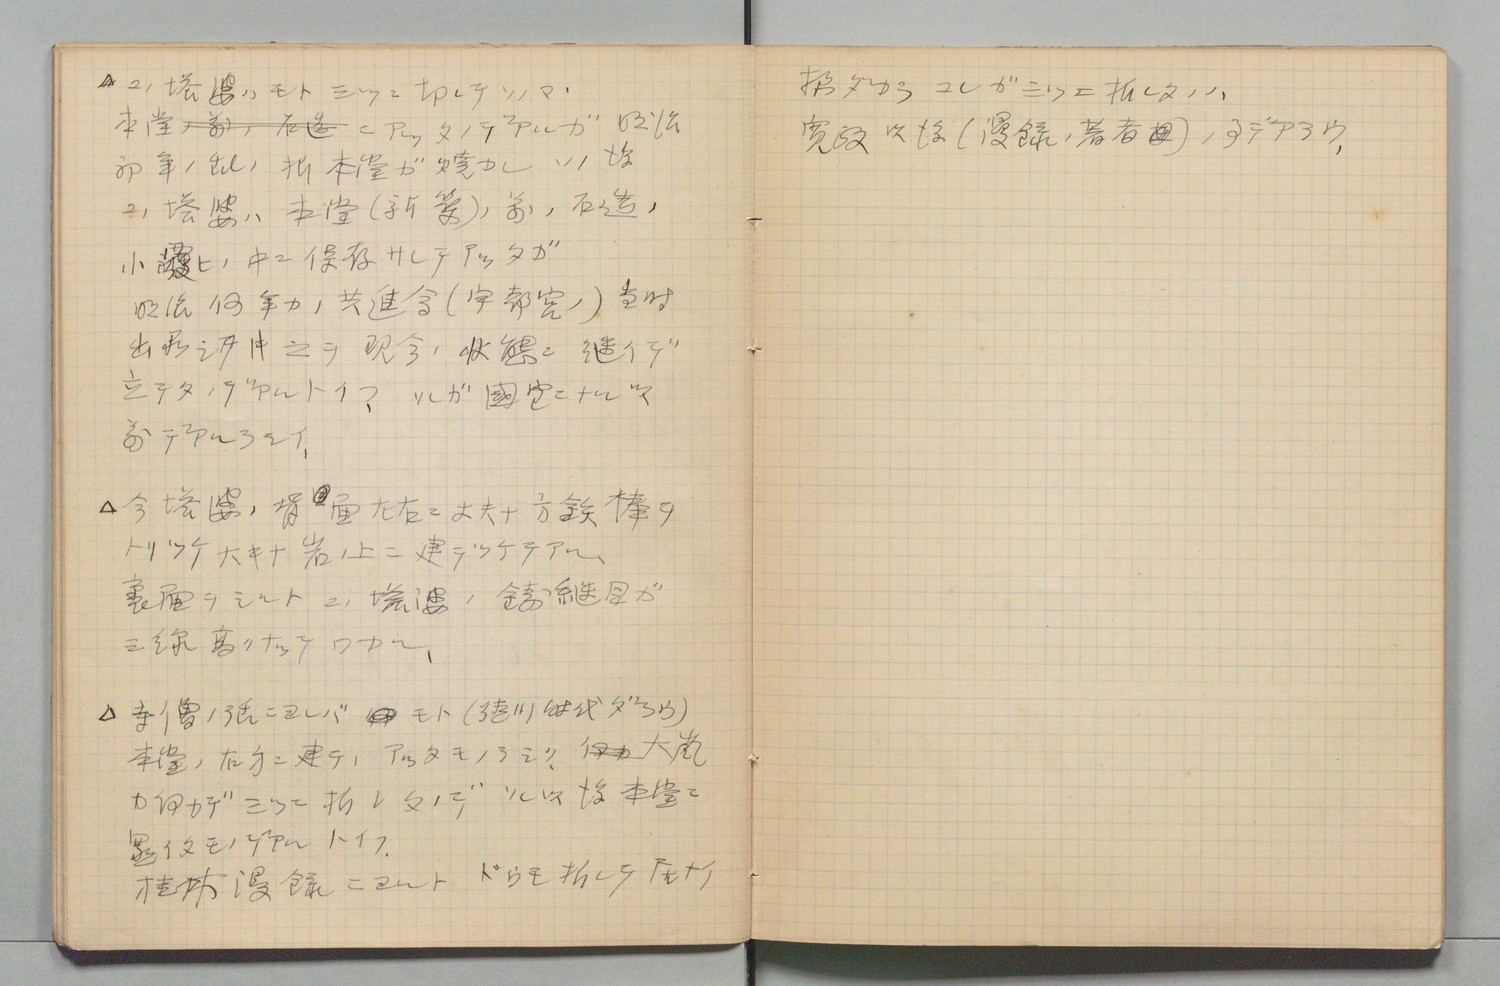 △コノ塔婆ハモト三ツニ切レテソノママ
本堂ノ前ノ石造ニアッタノデアルガ 明治
初年ノ出火ノ折本堂ガ燒カレ ソノ後
コノ塔婆ハ 本堂(新築)ノ前ノ石造ノ
小 ヒノ中ニ保存サレテアッタガ
明治何年カノ共進会(宇都宮ノ)当時
出 之ヲ 現今ノ状態ニ継イデ
立テタノデアルトイフ、ソレガ國宝ニナル以
前デアルラシイ、
△今塔婆ノ背面左右ニ丈夫ナ方鉄棒ヲ
トリツケ大キナ岩ノ上ニ建テツケテアル、
裏面ヲミルトコノ塔婆ノ鋳継目ガ
三線高クナッテワカル、
△寺僧ノ話ニヨレバ モト(德川時代ダラウ)
本堂ノ右方ニ建テヽアッタモノラシク、何カ大嵐
カ何カデ三ツニ折レタノデ ソレ以後本堂ニ
置イタモノデアルトイフ、
桂林漫録ニヨルト ドウモ折レテ居ナイ
様ダカラ コレガ三ツニ折レタノハ、
寛政以後(漫録ノ著者 )ノ事デアラウ、